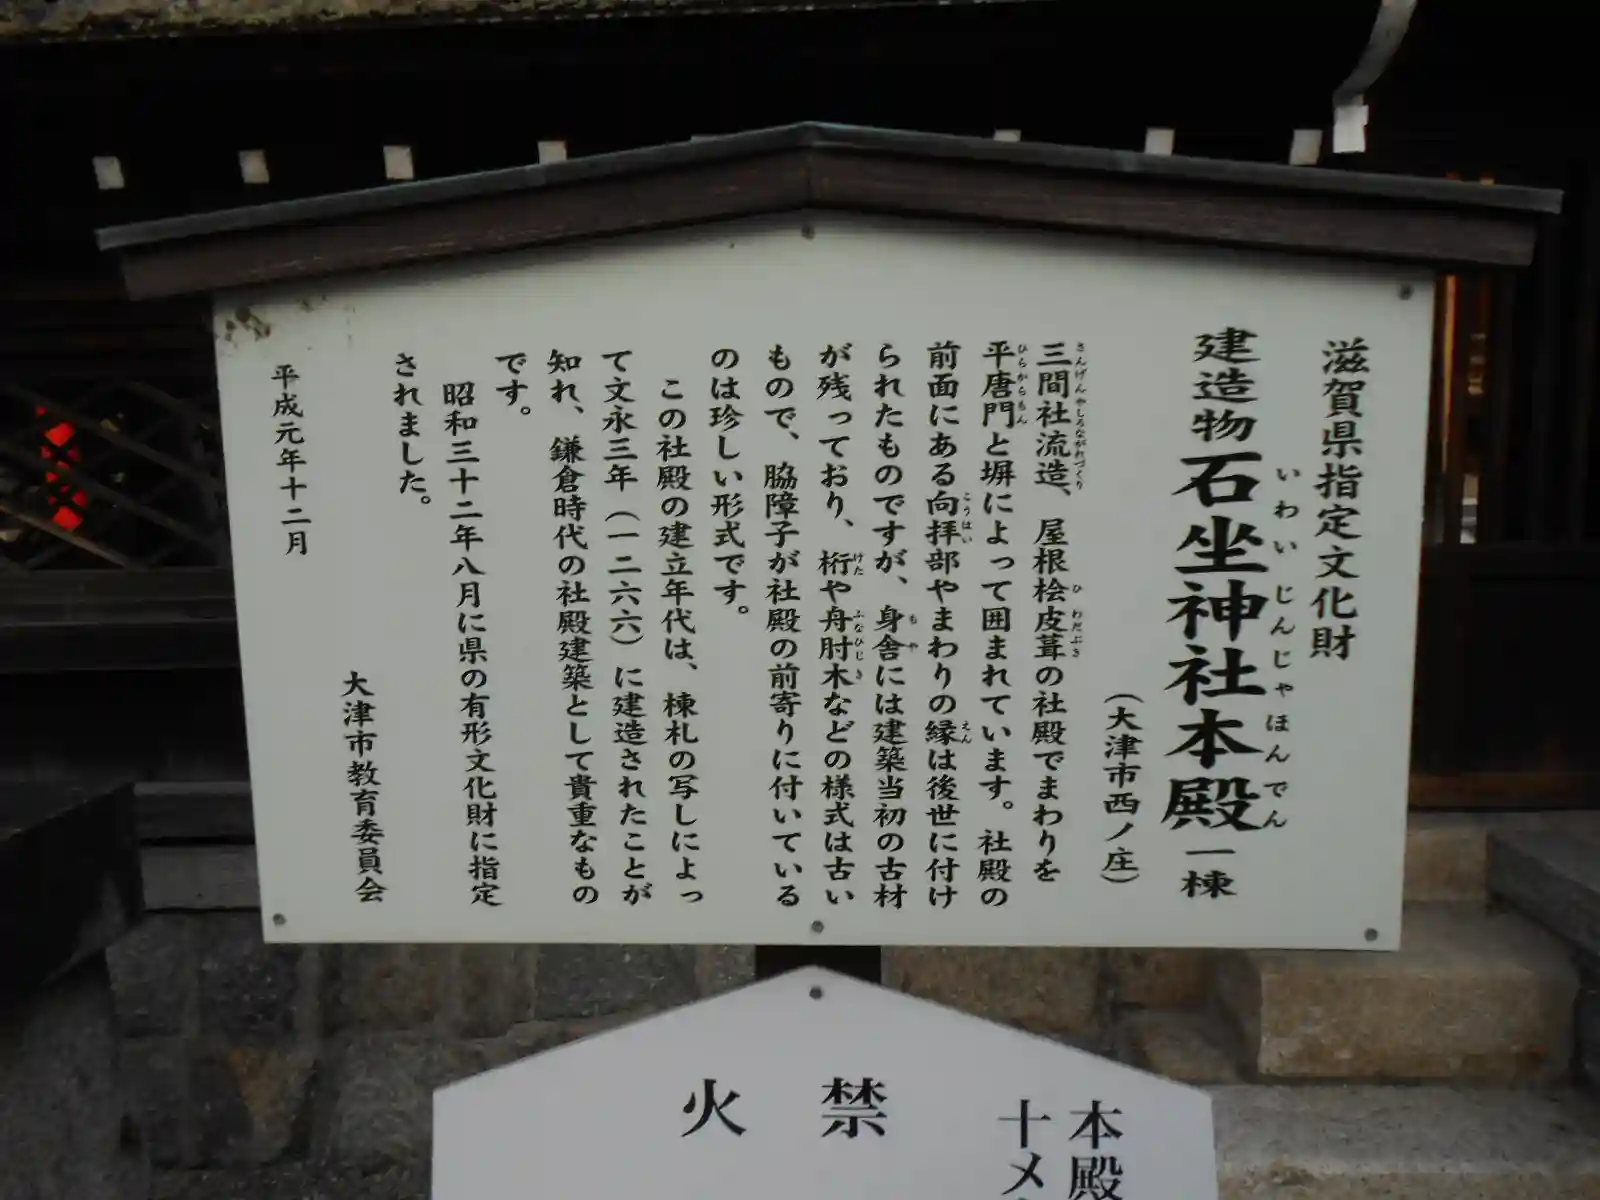 滋賀県指定文化財
建造物石坐神社本殿一棟
いわいじんじゃほんでん
（大津市西ノ庄）
三間社流造、屋根桧皮葺の社殿でまわりを
さんげんやしろながれづくり
ひわだぶき
平唐門と塀によって囲まれています。社殿の
ひらからもん
前面にある向拝部やまわりの縁は後世に付け
こうはい
えん
られたものですが、身舎には建築当初の古材
もや
が残っており、桁や舟肘木などの様式は古い
けた
ふなひじき
もので、脇障子が社殿の前寄りに付いている
のは珍しい形式です。
この社殿の建立年代は、棟札の写しによっ
て文永三年（一二六六）に建造されたことが
知れ、鎌倉時代の社殿建築として貴重なもの
です。
昭和三十二年八月に県の有形文化財に指定
されました。
大津市教育委員会
平成元年十二月
本殿
十メ
禁
火